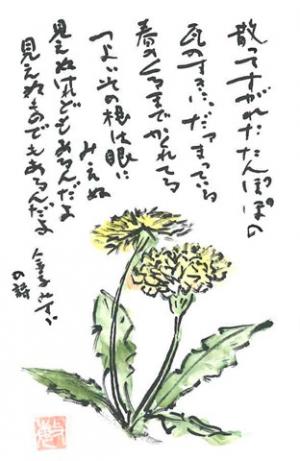 散ってすがれたたんぽぽの
瓦のすきに、だァまっている
春のくるまでかくれてる
つよいその根は眼に
みえぬ
見えぬけれどもあるんだよ
見えぬものでもあるんだよ
金子みすゞ
の詩